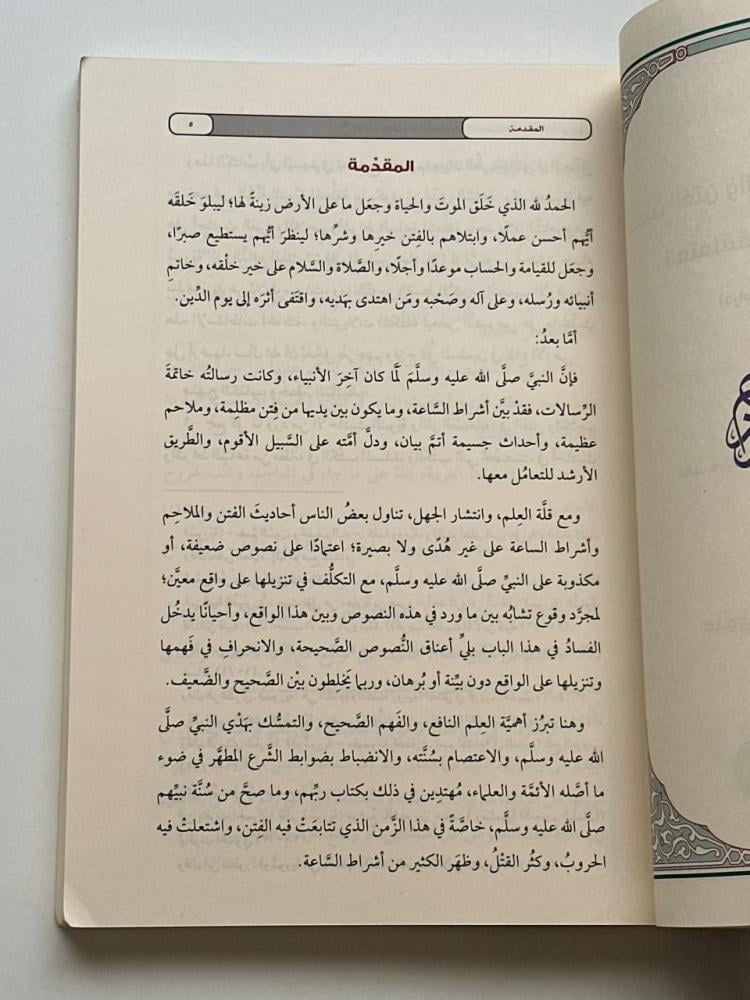 المقدمة
٥
المقدْمة
الحمدُ لله الذي خَلَق الموتَ والحياة وجعَل ما على الأرض زينةً لها؛ ليبلوَ خَلقَه
أيُّهم أحسن عملًا، وابتلاهم بالفِتن خيرِها وشرِّها؛ لينظرَ أيُّهم يستطيع صبرًا،
وجعَل للقيامة والحساب موعدًا وأجلًا، والصَّلاة والسَّلام على خير خلْقه، وخاتمِ
أنبيائه ورُسله، وعلى آله وصَحْبه ومَن اهتدى بهَديه، واقتَفى أثرَه إلى يوم الدِّين.
أمَّا بعدُ:
فإنَّ النبيَّ صلَّى الله عليه وسلَّمَ لَمَّا كان آخِرَ الأنبياء، وكانت رسالتُه خاتمةَ
الرِّسالات، فقدْ بيَّن أشراط السَّاعة، وما يكون بين يديها من فِتن مظلِمة، وملاحم
عظيمة، وأحداث جسيمة أتمَّ بيان، ودلَّ أمَّته على السَّبيل الأقوم، والطَّريق
الأرشد للتعامُل معها.
ومع قلَّة العِلم، وانتشار الجهل، تناول بعضُ الناس أحاديثَ الفتن والملاحِم
وأشراط الساعة على غير هُدًى ولا بصيرة؛ اعتمادًا على نصوص ضعيفة، أو
مكذوبة على النبيِّ صلَّى الله عليه وسلَّم، مع التكلُّف في تنزيلها على واقع معيَّن؛
لمجرَّد وقوع تشابُه بين ما ورد في هذه النصوص وبين هذا الواقع، وأحيانًا يدخُل
الفسادُ في هذا الباب بليِّ أعناق النُّصوص الصَّحيحة، والانحراف في فَهمها
وتنزيلها على الواقِع دون بيِّنة أو بُرهان، وربما يَخلِطون بيْن الصَّحيح والضَّعيف.
وهنا تبرُز أهميَّة العِلم النافع، والفَهم الصَّحيح، والتمسُّك بهَدْي النبيِّ صلَّى
الله عليه وسلَّم، والاعتصام بسُنَّته، والانضباط بضوابط الشَّرع المطهَّر في ضوء
ما أصَّله الأئمَّة والعلماء، مُهتدِين في ذلك بكتاب ربِّهم، وما صحَّ من سُنَّة نبيِّهم
صلَّى الله عليه وسلَّم، خاصَّةً في هذا الزَّمن الذي تتابعَتْ فيه الفِتن، واشتعلتْ فيه
الحروبُ، وكثُر القتْلُ، وظهَر الكثير من أشراط السَّاعة.